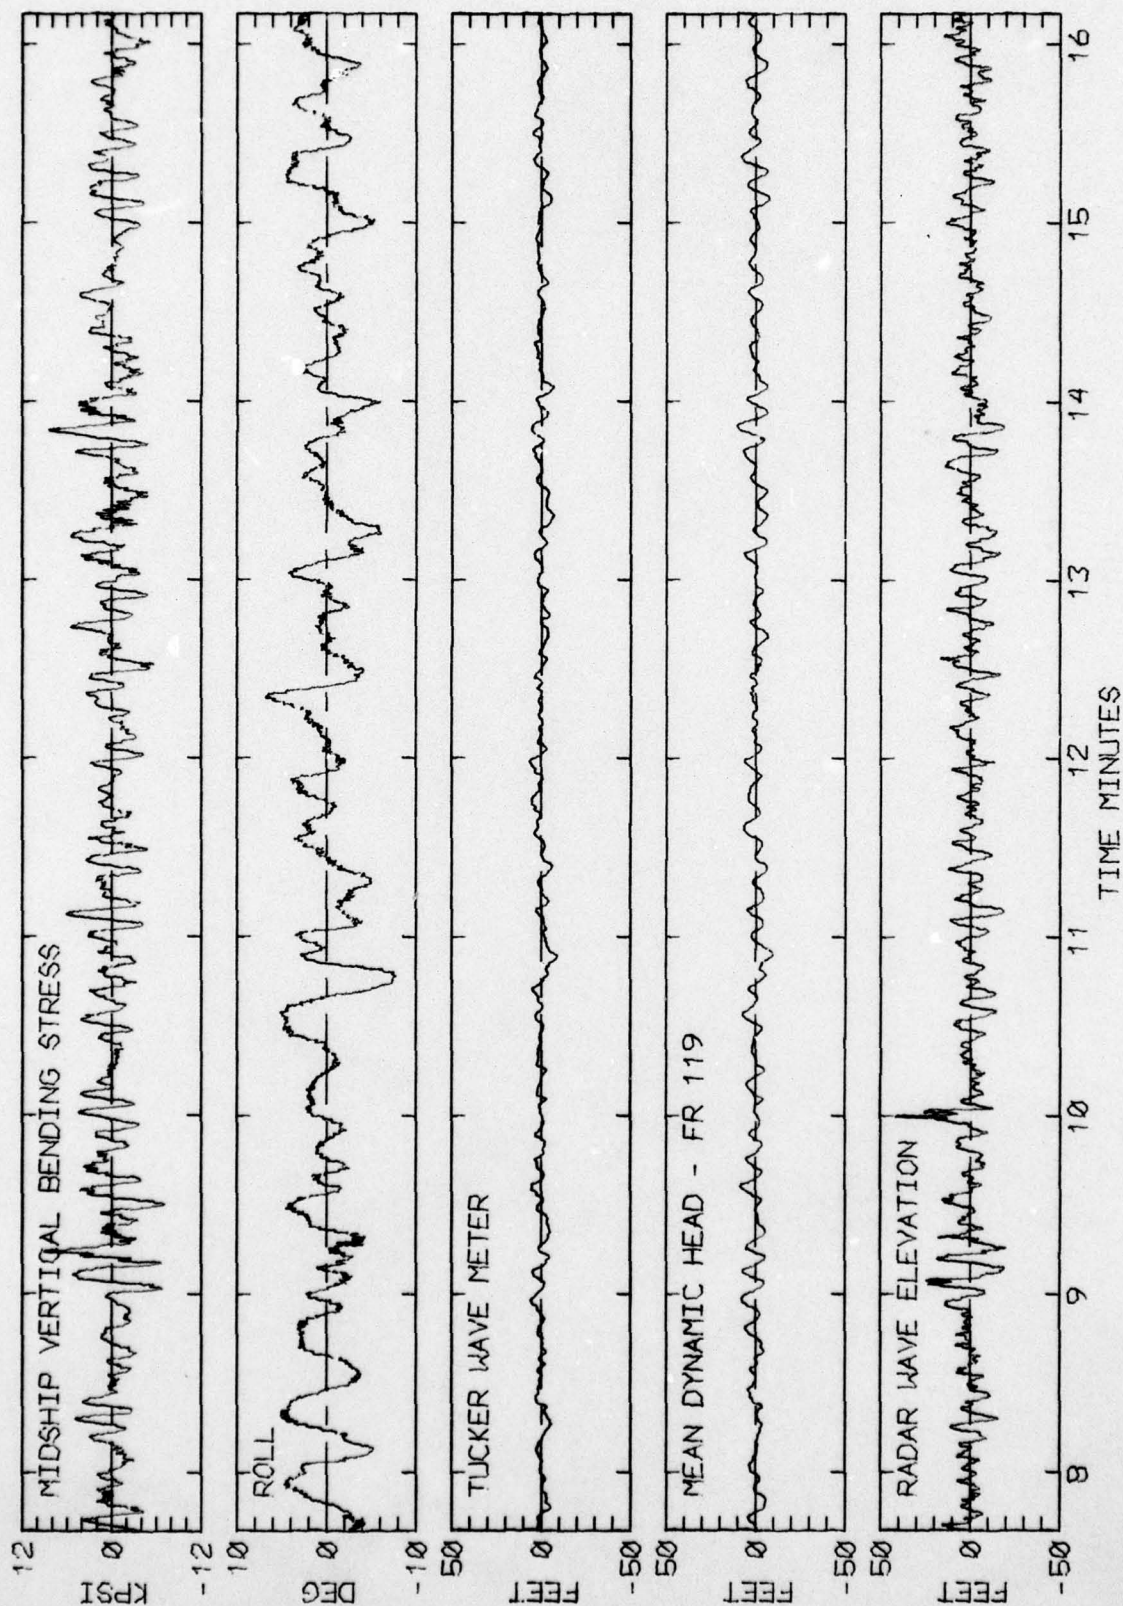 MIDSHIP VERTICAL BENDING STRESS
12
0
-12
KPSI
ROLL
10
0
-10
DEG
TUCKER WAVE METER
50
0
-50
FEET
MEAN DYNAMIC HEAD - FR 119
50
0
-50
FEET
RADAR WAVE ELEVATION
50
0
-50
FEET
8 9 10 11 12 13 14 15 16
TIME MINUTES